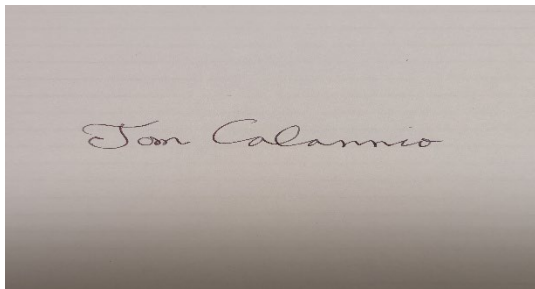 Tom Calannio